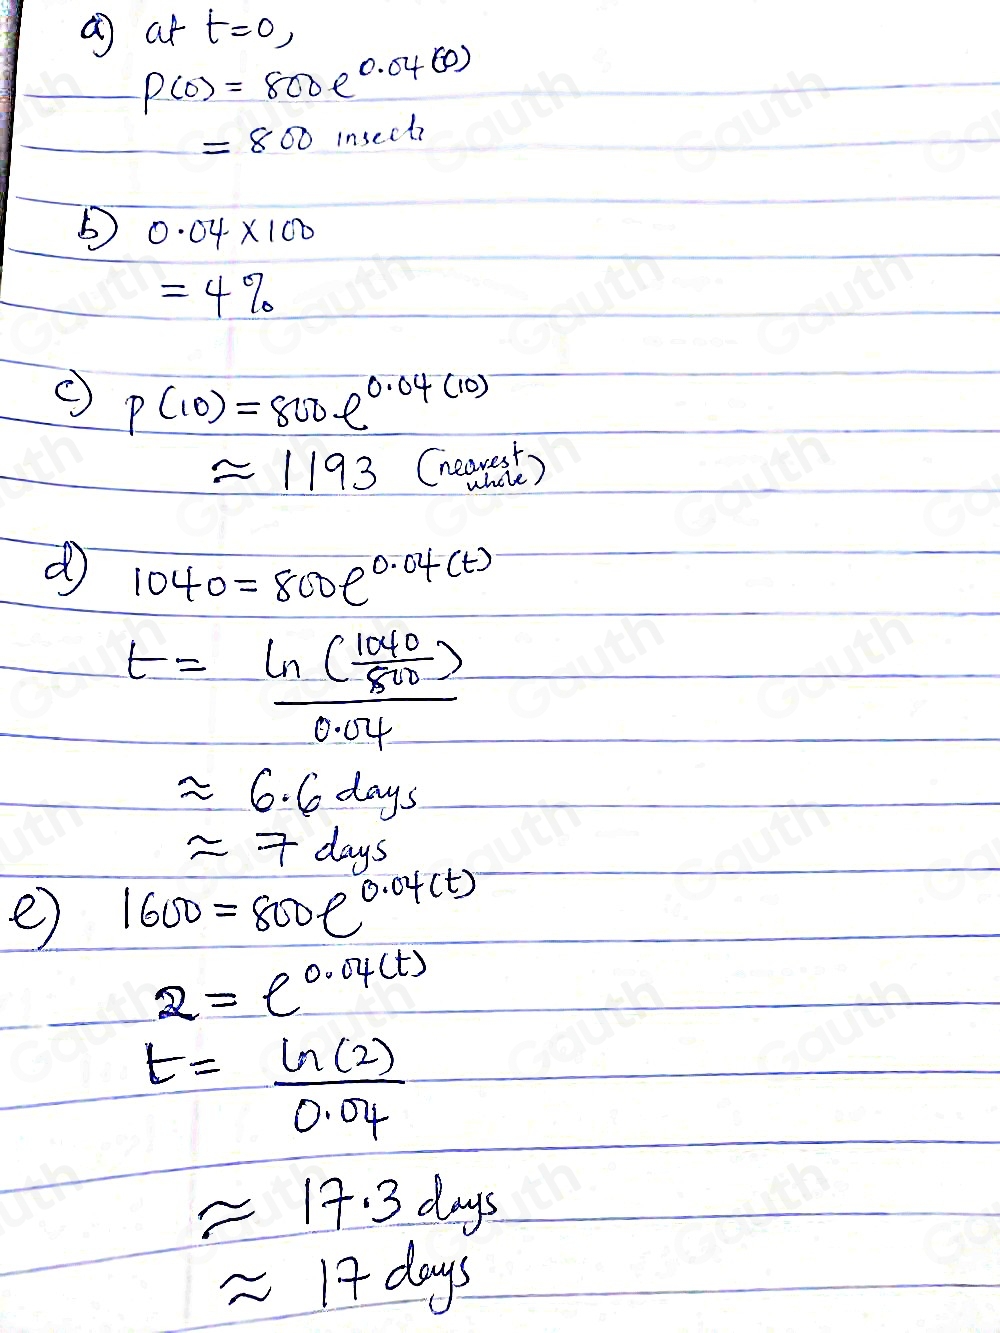 a) at t=0,
P(0) = 800e^0.04(0)
= 800 insects
b) 0.04 × 100
= 4%
c) P(10) = 800e^0.04(10)
≈ 1193 (nearest whole)
d) 1040 = 800e^0.04(t)
t = ln(1040/800) / 0.04
≈ 6.6 days
≈ 7 days
e) 1600 = 800e^0.04(t)
2 = e^0.04(t)
t = ln(2) / 0.04
≈ 17.3 days
≈ 17 days
Gauth